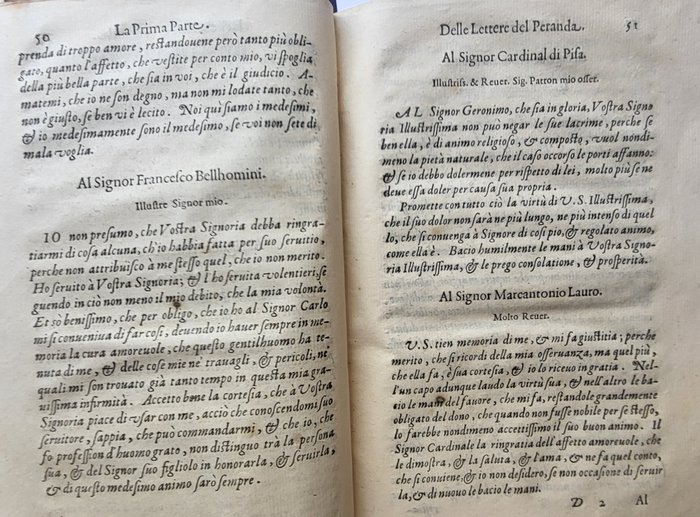 50 La Prima Parte.
prenda di troppo amore, restandouene però tanto più obli-
gato, quanto l'affetto, che vestite per conto mio, vi spoglia
della più bella parte, che sia in voi, che è il giudicio. A-
matemi, che io ne son degno, ma non mi lodate tanto, che
non è giusto, se ben vi è lecito. Noi quì siamo i medesimi,
& io medesimamente sono il medesimo, se voi non sete di
mala voglia.
Al Signor Francesco Bellhomini.
Illustre Signor mio.
IO non presumo, che Vostra Signoria debba ringra-
tiarmi di cosa alcuna, ch'io habbia fatta per suo seruitio,
perche non attribuisco à me stesso quel, che io non merito.
Ho seruito à Vostra Signoria; & l'ho seruita volentieri, se
guendo in ciò non meno il mio debito, che la mia volontà.
Et sò benissimo, che per obligo, che io ho al Signor Carlo
mi si conueniua di far così, deuendo io hauer sempre in me-
moria la cura amoreuole, che questo gentilhuomo ha te-
nuta di me, & delle cose mie ne trauagli, & pericoli, ne
quali mi son trouato già tanto tempo in questa mia gra-
uissima infirmità. Accetto bene la cortesia, che à Vostra
Signoria piace di vsar con me, acciò che conoscendomi suo
seruitore, sappia, che può commandarmi, & che io, che
fo profession d'huomo grato, non distinguo trà la persona
sua, & del Signor suo figliolo in honorarla, & seruirla,
& di questo medesimo animo sarò sempre.
Delle Lettere del Peranda. 51
Al Signor Cardinal di Pisa.
Illustriss. & Reuer. Sig. Patron mio osser.
AL Signor Geronimo, che sia in gloria, Vostra Signo
ria Illustrissima non può negar le sue lacrime, perche se
ben ella, è di animo religioso, & composto, vuol nondi-
meno la pietà naturale, che il caso occorso le porti affanno:
& se io debbo dolermene per rispetto di lei, molto più se ne
deue essa doler per causa sua propria.
Promette con tutto ciò la virtù di V. S. Illustrissima,
che il suo dolor non sarà ne più lungo, ne più intenso di quel
lo, che si conuenga à Signore di così pio, & regolato animo,
come ella è. Bacio humilmente le mani à Vostra Signo-
ria Illustrissima, & le prego consolatione, & prosperità.
Al Signor Marcantonio Lauro.
Molto Reuer.
V. S. tien memoria di me, & mi fa giustitia; perche
merito, che si ricordi della mia osseruanza, ma quel più,
che ella fa, è sua cortesia, & io lo riceuo in gratia. Nel-
l'un capo adunque laudo la virtù sua, & nell'altro le ba-
cio le mani del fauore, che mi fa, restandole grandemente
obligato del dono, che quando non fusse nobile per se stesso,
lo farebbe nondimeno accettissimo il suo buon animo. Il
Signor Cardinale la ringratia dell'affetto amoreuole, che
le dimostra, & la saluta, & l'ama, & ne fa quel conto,
che si conuiene, & io non desidero, se non occasione di seruir
la, & di nuouo le bacio le mani.
D 2 Al